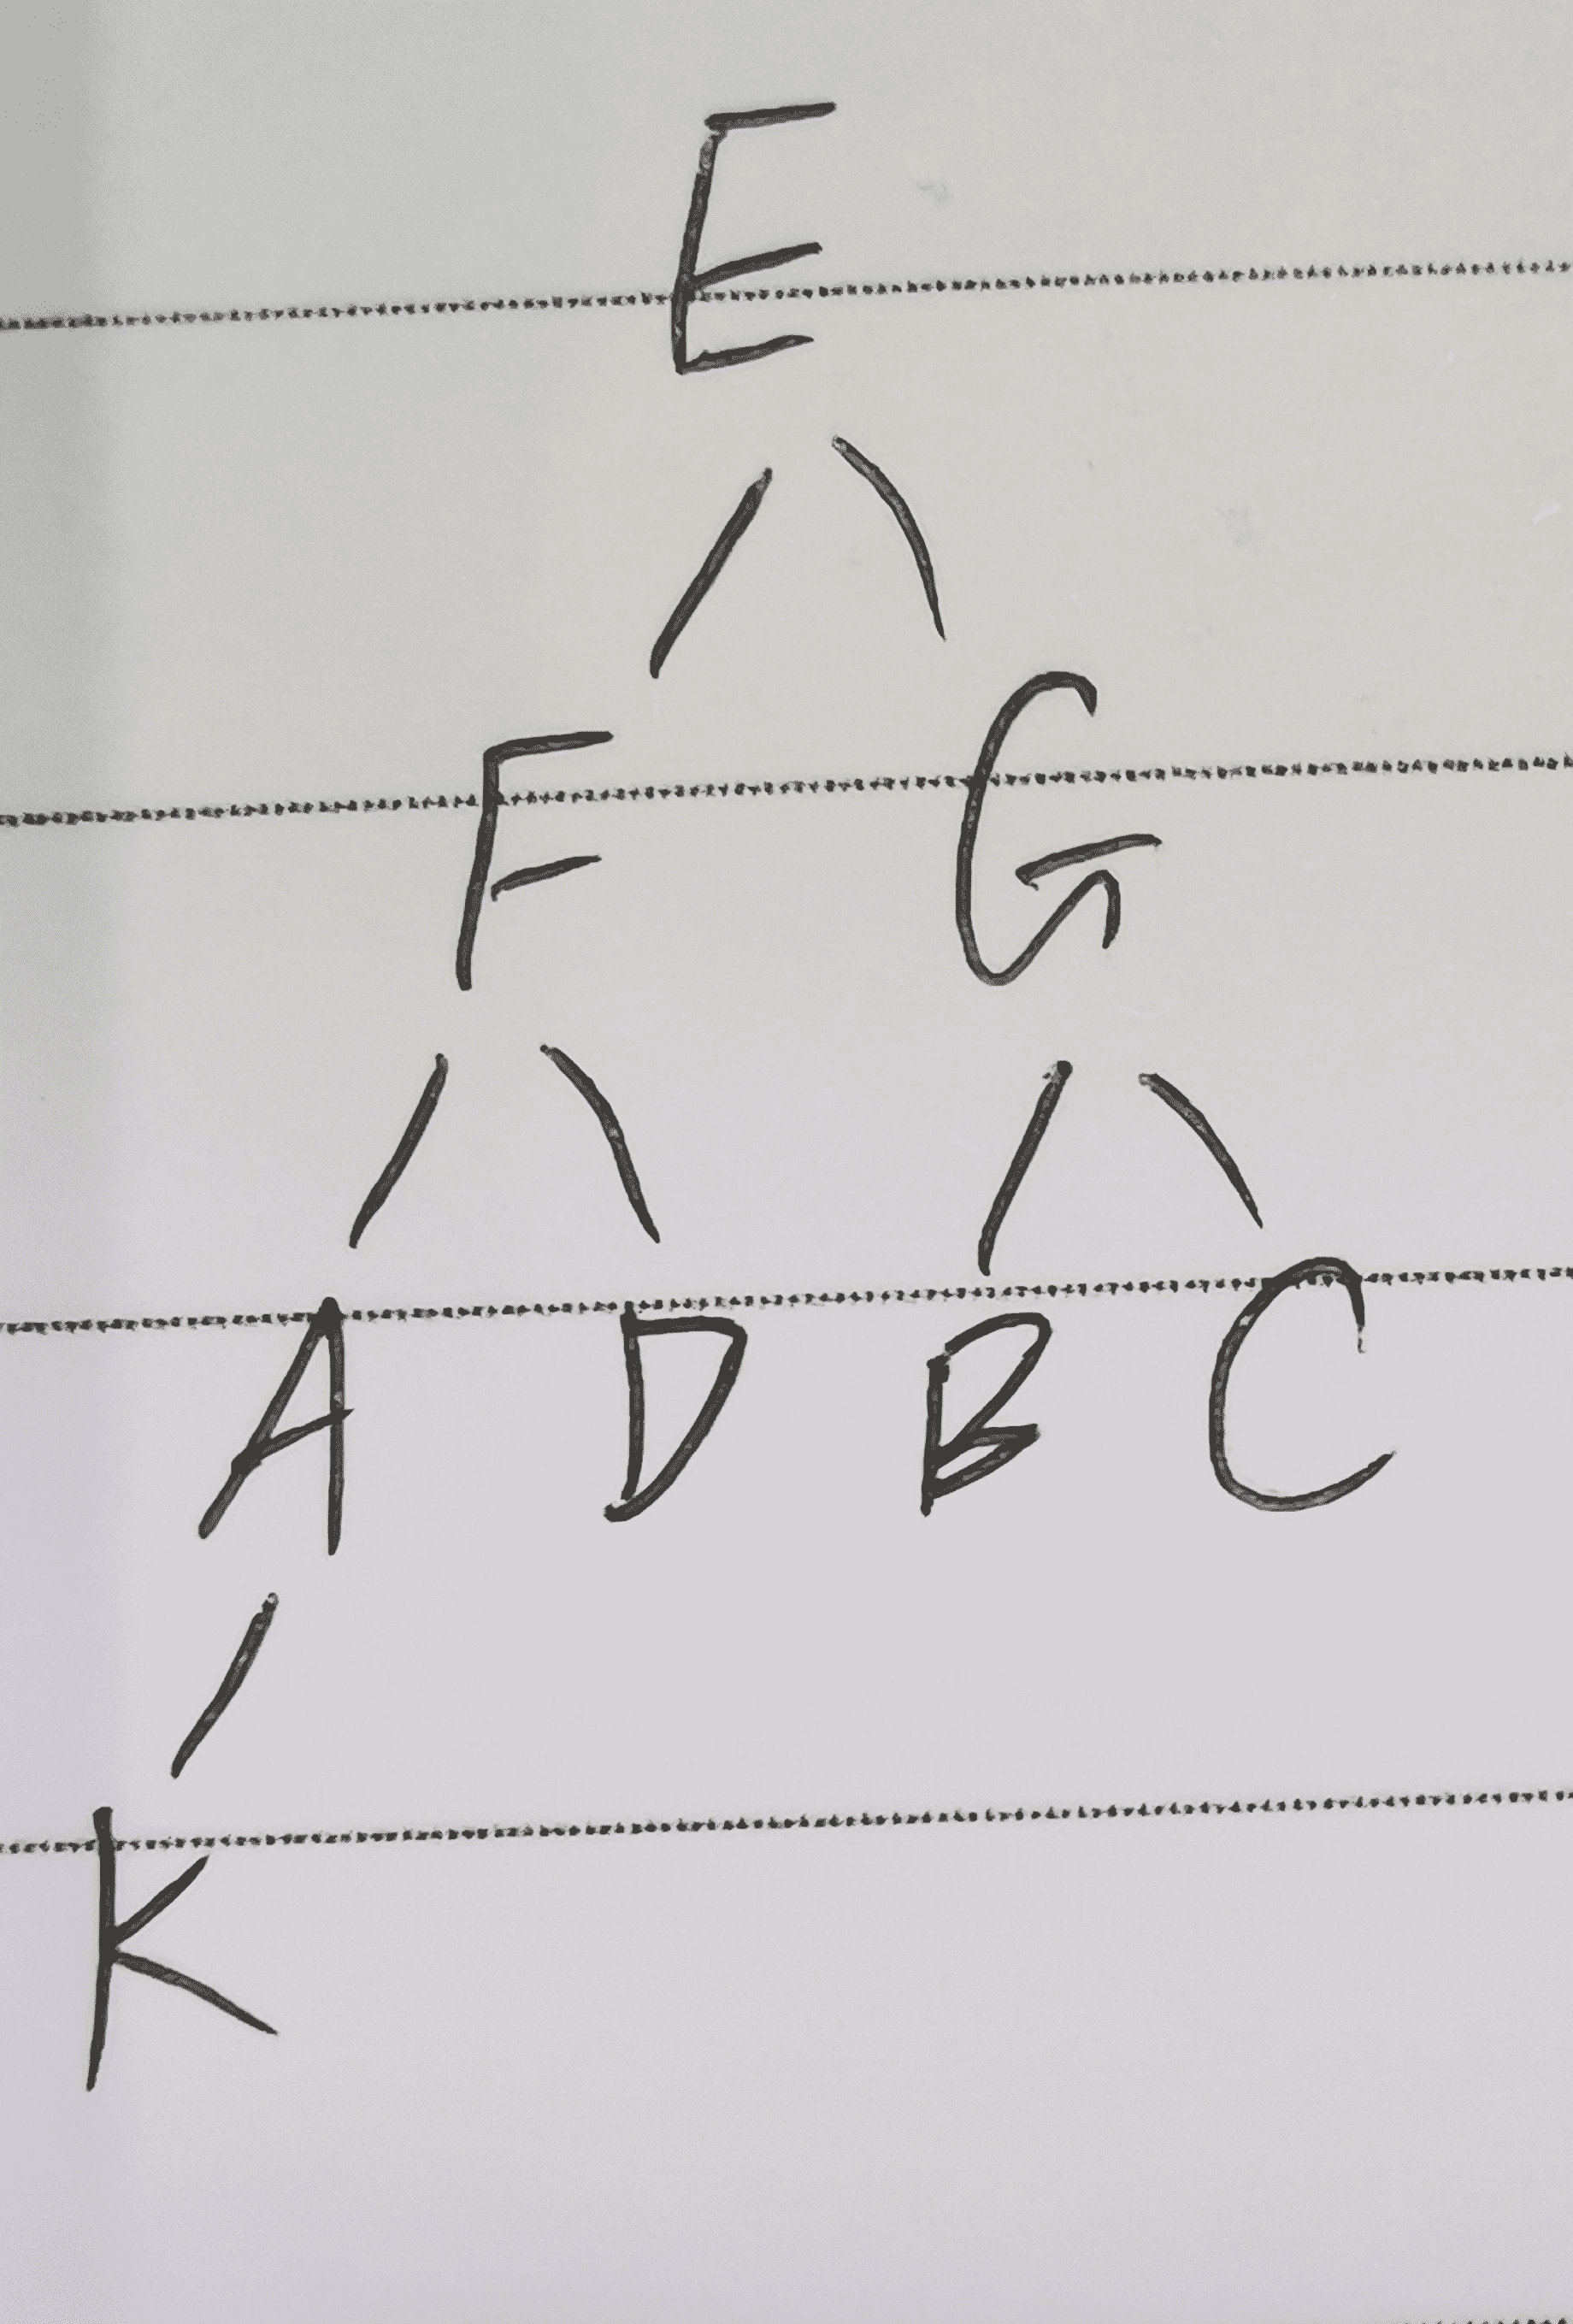 E
F G
A D B C
K